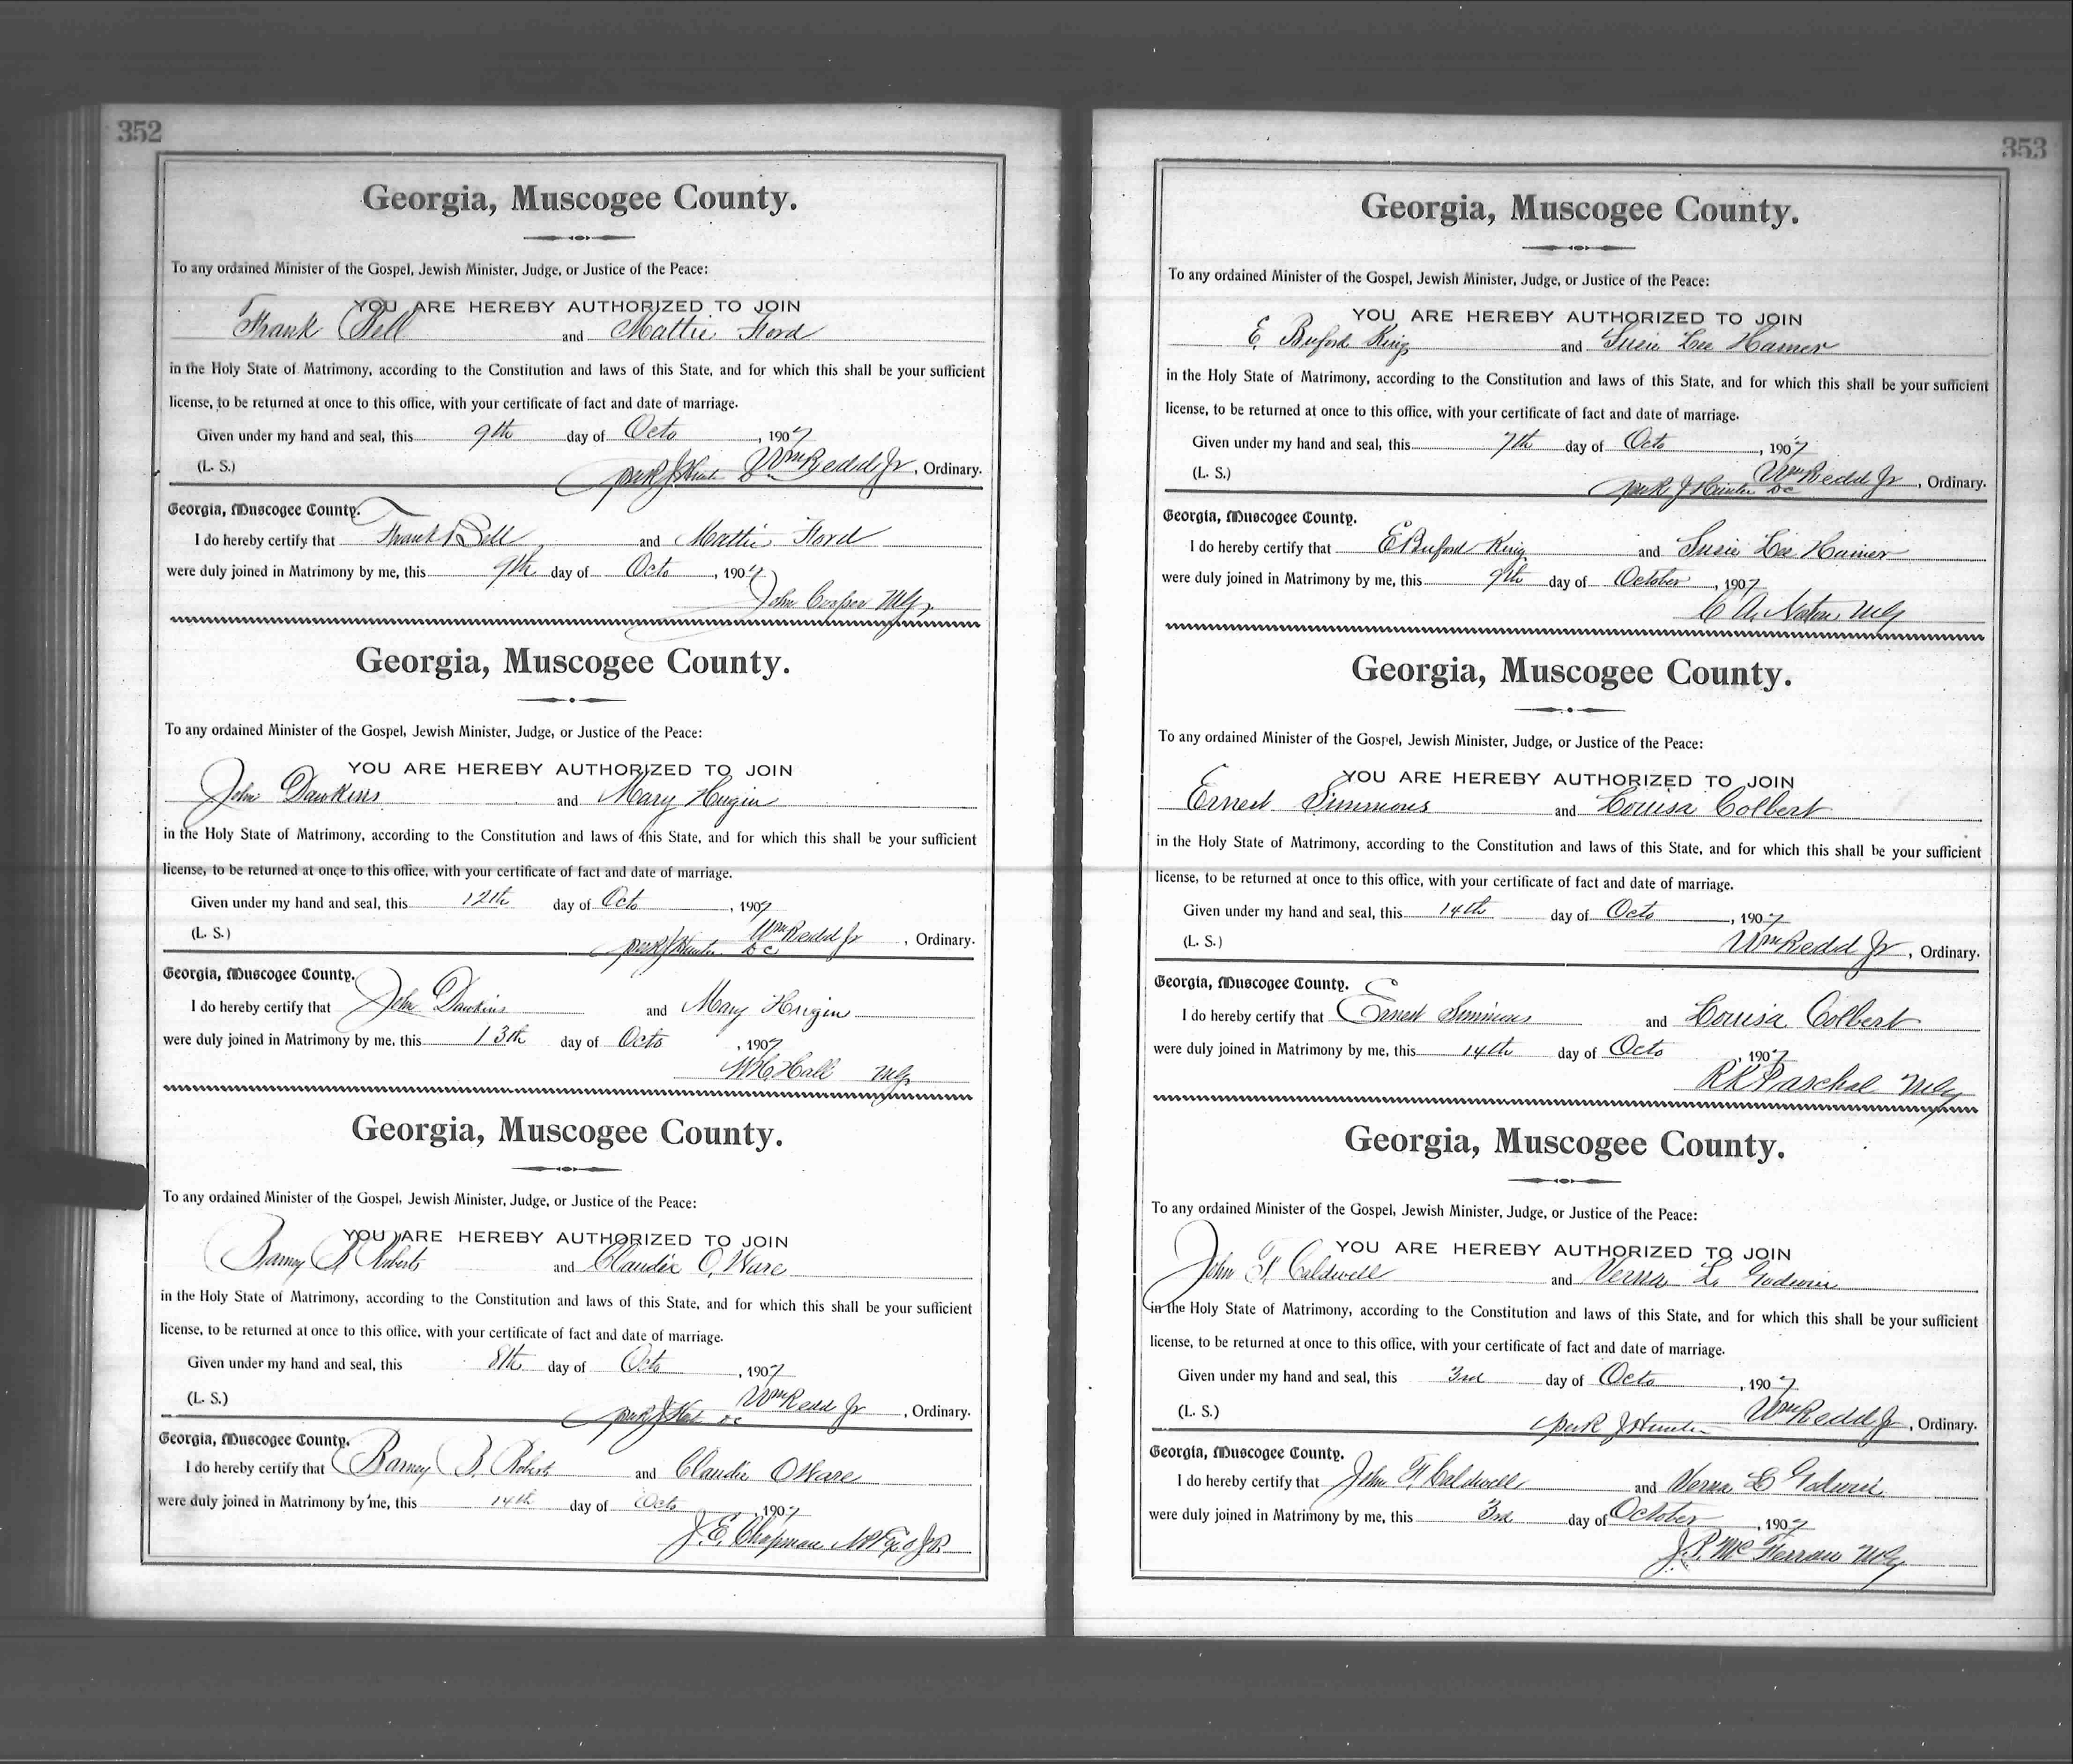 352
Georgia, Muscogee County.
To any ordained Minister of the Gospel, Jewish Minister, Judge, or Justice of the Peace:
YOU ARE HEREBY AUTHORIZED TO JOIN
Frank Bell and Mattie Ford
in the Holy State of Matrimony, according to the Constitution and laws of this State, and for which this shall be your sufficient
license, to be returned at once to this office, with your certificate of fact and date of marriage.
Given under my hand and seal, this 9th day of Octo, 1907
(L. S.) per R J Hunter Wm Redd Jr, Ordinary.
Georgia, Muscogee County.
I do hereby certify that Frank Bell and Mattie Ford
were duly joined in Matrimony by me, this 9th day of Octo, 1907
John Cooper MG,
Georgia, Muscogee County.
To any ordained Minister of the Gospel, Jewish Minister, Judge, or Justice of the Peace:
YOU ARE HEREBY AUTHORIZED TO JOIN
John Dawkins and Mary Hugin
in the Holy State of Matrimony, according to the Constitution and laws of this State, and for which this shall be your sufficient
license, to be returned at once to this office, with your certificate of fact and date of marriage.
Given under my hand and seal, this 12th day of Octo, 1907
(L. S.) per R J Hunter DC Wm Redd Jr, Ordinary.
Georgia, Muscogee County.
I do hereby certify that John Dawkins and Mary Hugin
were duly joined in Matrimony by me, this 13th day of Octo, 1907
W.C. Hall MG
Georgia, Muscogee County.
To any ordained Minister of the Gospel, Jewish Minister, Judge, or Justice of the Peace:
YOU ARE HEREBY AUTHORIZED TO JOIN
Barney B Roberts and Claudie O. Ware
in the Holy State of Matrimony, according to the Constitution and laws of this State, and for which this shall be your sufficient
license, to be returned at once to this office, with your certificate of fact and date of marriage.
Given under my hand and seal, this 8th day of Octo, 1907
(L. S.) per R J Hunter DC Wm Redd Jr, Ordinary.
Georgia, Muscogee County.
I do hereby certify that Barney B. Roberts and Claudie O Ware
were duly joined in Matrimony by me, this 14th day of Octo, 1907
J. E. Chapman
353
Georgia, Muscogee County.
To any ordained Minister of the Gospel, Jewish Minister, Judge, or Justice of the Peace:
YOU ARE HEREBY AUTHORIZED TO JOIN
E. Buford King and Susie Lee Hamer
in the Holy State of Matrimony, according to the Constitution and laws of this State, and for which this shall be your sufficient
license, to be returned at once to this office, with your certificate of fact and date of marriage.
Given under my hand and seal, this 7th day of Octo, 1907
(L. S.) per R J Hunter DC Wm Redd Jr, Ordinary.
Georgia, Muscogee County.
I do hereby certify that E Buford King and Susie Lee Hamer
were duly joined in Matrimony by me, this 9th day of October, 1907
C A. Norton MG
Georgia, Muscogee County.
To any ordained Minister of the Gospel, Jewish Minister, Judge, or Justice of the Peace:
YOU ARE HEREBY AUTHORIZED TO JOIN
Ernest Simmons and Louisa Colbert
in the Holy State of Matrimony, according to the Constitution and laws of this State, and for which this shall be your sufficient
license, to be returned at once to this office, with your certificate of fact and date of marriage.
Given under my hand and seal, this 14th day of Octo, 1907
(L. S.) Wm Redd Jr, Ordinary.
Georgia, Muscogee County.
I do hereby certify that Ernest Simmons and Louisa Colbert
were duly joined in Matrimony by me, this 14th day of Octo, 1907
R K Paschal MG
Georgia, Muscogee County.
To any ordained Minister of the Gospel, Jewish Minister, Judge, or Justice of the Peace:
YOU ARE HEREBY AUTHORIZED TO JOIN
John F. Caldwell and Verna L. Godwin
in the Holy State of Matrimony, according to the Constitution and laws of this State, and for which this shall be your sufficient
license, to be returned at once to this office, with your certificate of fact and date of marriage.
Given under my hand and seal, this 3rd day of Octo, 1907
(L. S.) per R J Hunter Wm Redd Jr, Ordinary.
Georgia, Muscogee County.
I do hereby certify that John F. Caldwell and Verna L Godwin
were duly joined in Matrimony by me, this 3rd day of October, 1907
J. P. McFerran MG